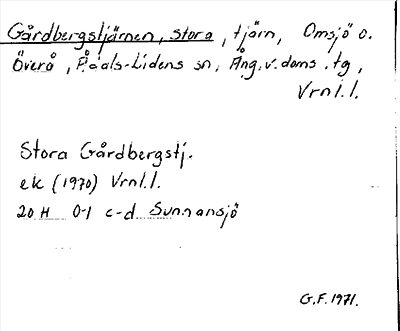 Gårdbergstjärnen, Stora, tjärn, Omsjö o.
Överå, Ådals-Lidens sn, Ång.v.doms.tg,
Vrnl.l.
Stora Gårdbergstj.
ek (1970) Vrnl.l.
20 H 0-1 c-d Sunnansjö
G.F. 1971.